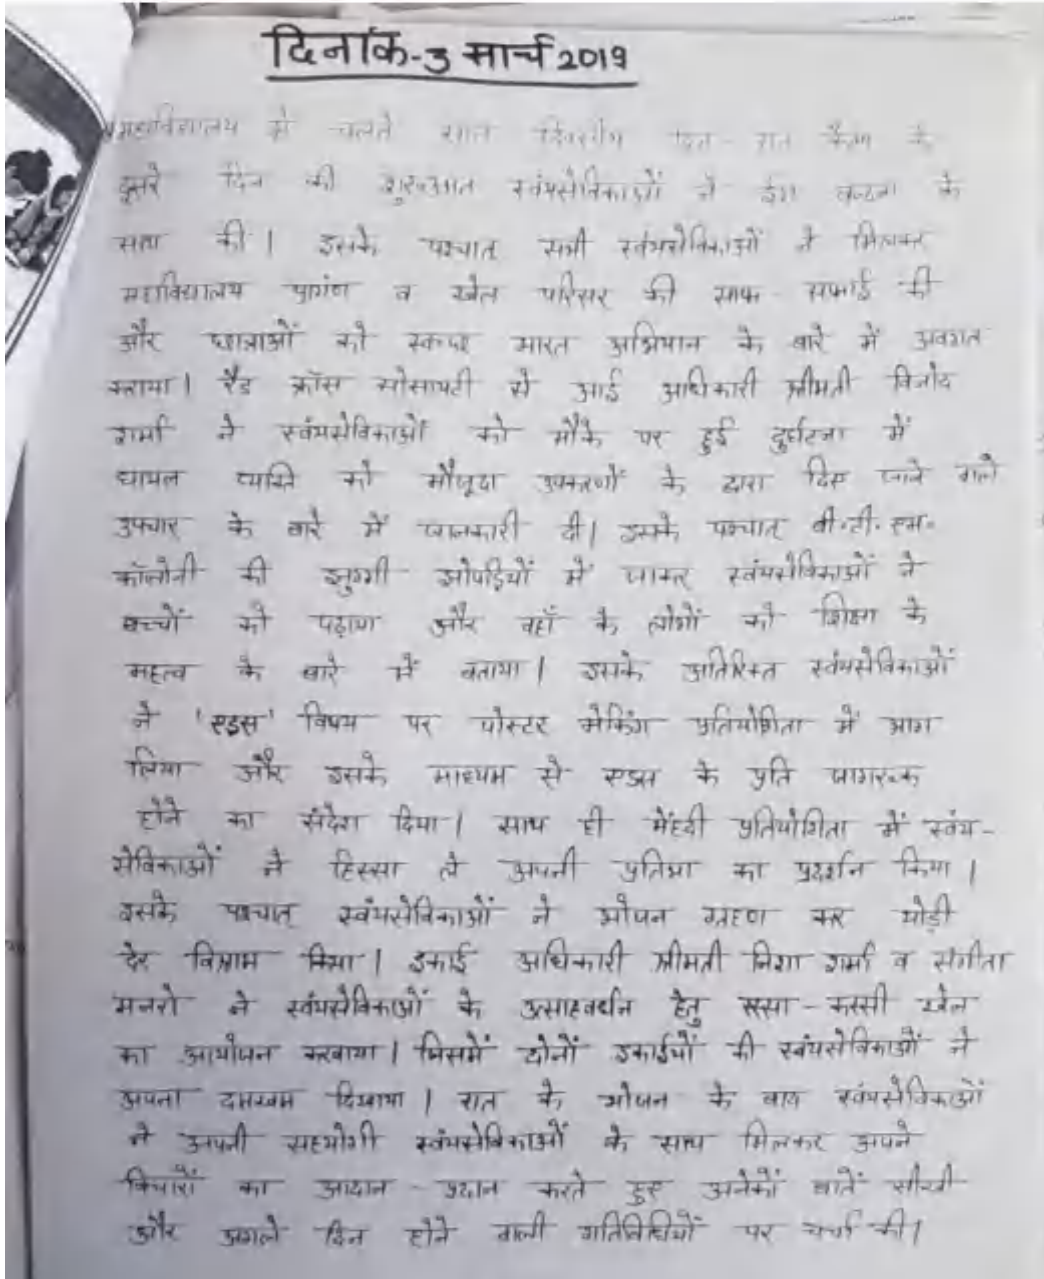 दिनांक-3 मार्च 2019
महाविद्यालय में चलते सात दिवसीय दिन-रात कैम्प के
दूसरे दिन की शुरुआत स्वंयसेविकाओं ने ईश वन्दना के
साथ की। इसके पश्चात् सभी स्वंयसेविकाओं ने मिलकर
महाविद्यालय प्रागंण व खेल परिसर की साफ-सफाई की
और छात्राओं को स्वच्छ भारत अभियान के बारे में अवगत
कराया। रैड क्रॉस सोसायटी से आई अधिकारी श्रीमती विनोद
शर्मा ने स्वंयसेविकाओं को मौके पर हुई दुर्घटना में
घायल व्यक्ति को मौजूदा उपकरणों के द्वारा दिए जाने वाले
उपचार के बारे में जानकारी दी। इसके पश्चात् बी.टी.एम.
कॉलोनी की झुग्गी झोपड़ियों में जाकर स्वंयसेविकाओं ने
बच्चों को पढ़ाया और वहाँ के लोगों को शिक्षा के
महत्व के बारे में बताया। इसके अतिरिक्त स्वंयसेविकाओं
ने 'एड्स' विषय पर पोस्टर मेकिंग प्रतियोगिता में भाग
लिया और इसके माध्यम से एड्स के प्रति जागरूक
होने का संदेश दिया। साथ ही मेंहदी प्रतियोगिता में स्वंय-
सेविकाओं ने हिस्सा ले अपनी प्रतिभा का प्रदर्शन किया।
इसके पश्चात् स्वंयसेविकाओं ने भोजन ग्रहण कर थोड़ी
देर विश्राम किया। इकाई अधिकारी श्रीमती निशा शर्मा व संगीता
मनरो ने स्वंयसेविकाओं के उत्साहवर्धन हेतु रस्सा-कस्सी खेल
का आयोजन करवाया। जिसमें दोनों इकाईयों की स्वंयसेविकाओं ने
अपना दमखम दिखाया। रात के भोजन के बाद स्वंयसेविकाओं
ने अपनी सहयोगी स्वंयसेविकाओं के साथ मिलकर अपने
विचारों का आदान-प्रदान करते हुए अनेकों बातें सीखी
और अगले दिन होने वाली गतिविधियों पर चर्चा की।